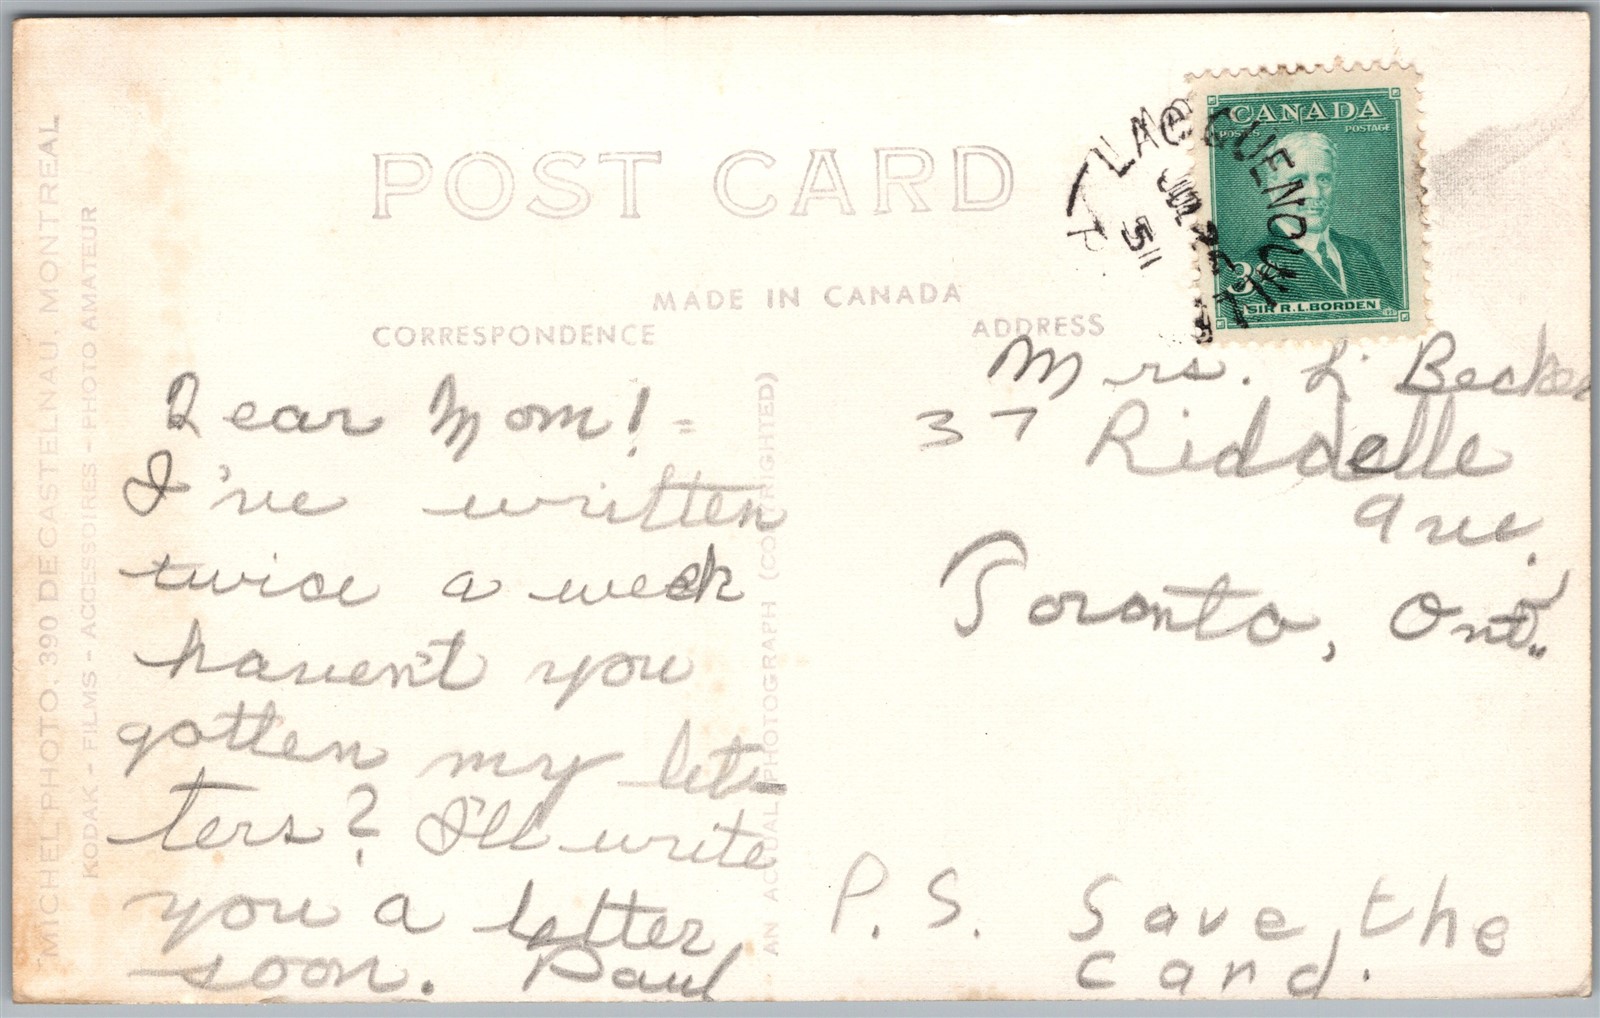 POST CARD
MADE IN CANADA
CORRESPONDENCE
ADDRESS
CANADA
POSTES POSTAGE
3
SIR R.L. BORDEN
JUL
51
Dear Mom! =
I've written
twice a week
haven't you
gotten my let-
ters? I'll write
you a letter
soon. Paul
Mrs. L Becker
37 Riddelle
Ave.
Toronto, Ont.
P.S. Save the
card.
MICHEL PHOTO, 390 DE CASTELNAU, MONTREAL
KODAK - FILMS - ACCESSOIRES - PHOTO AMATEUR
AN ACTUAL PHOTOGRAPH (COPYRIGHTED)